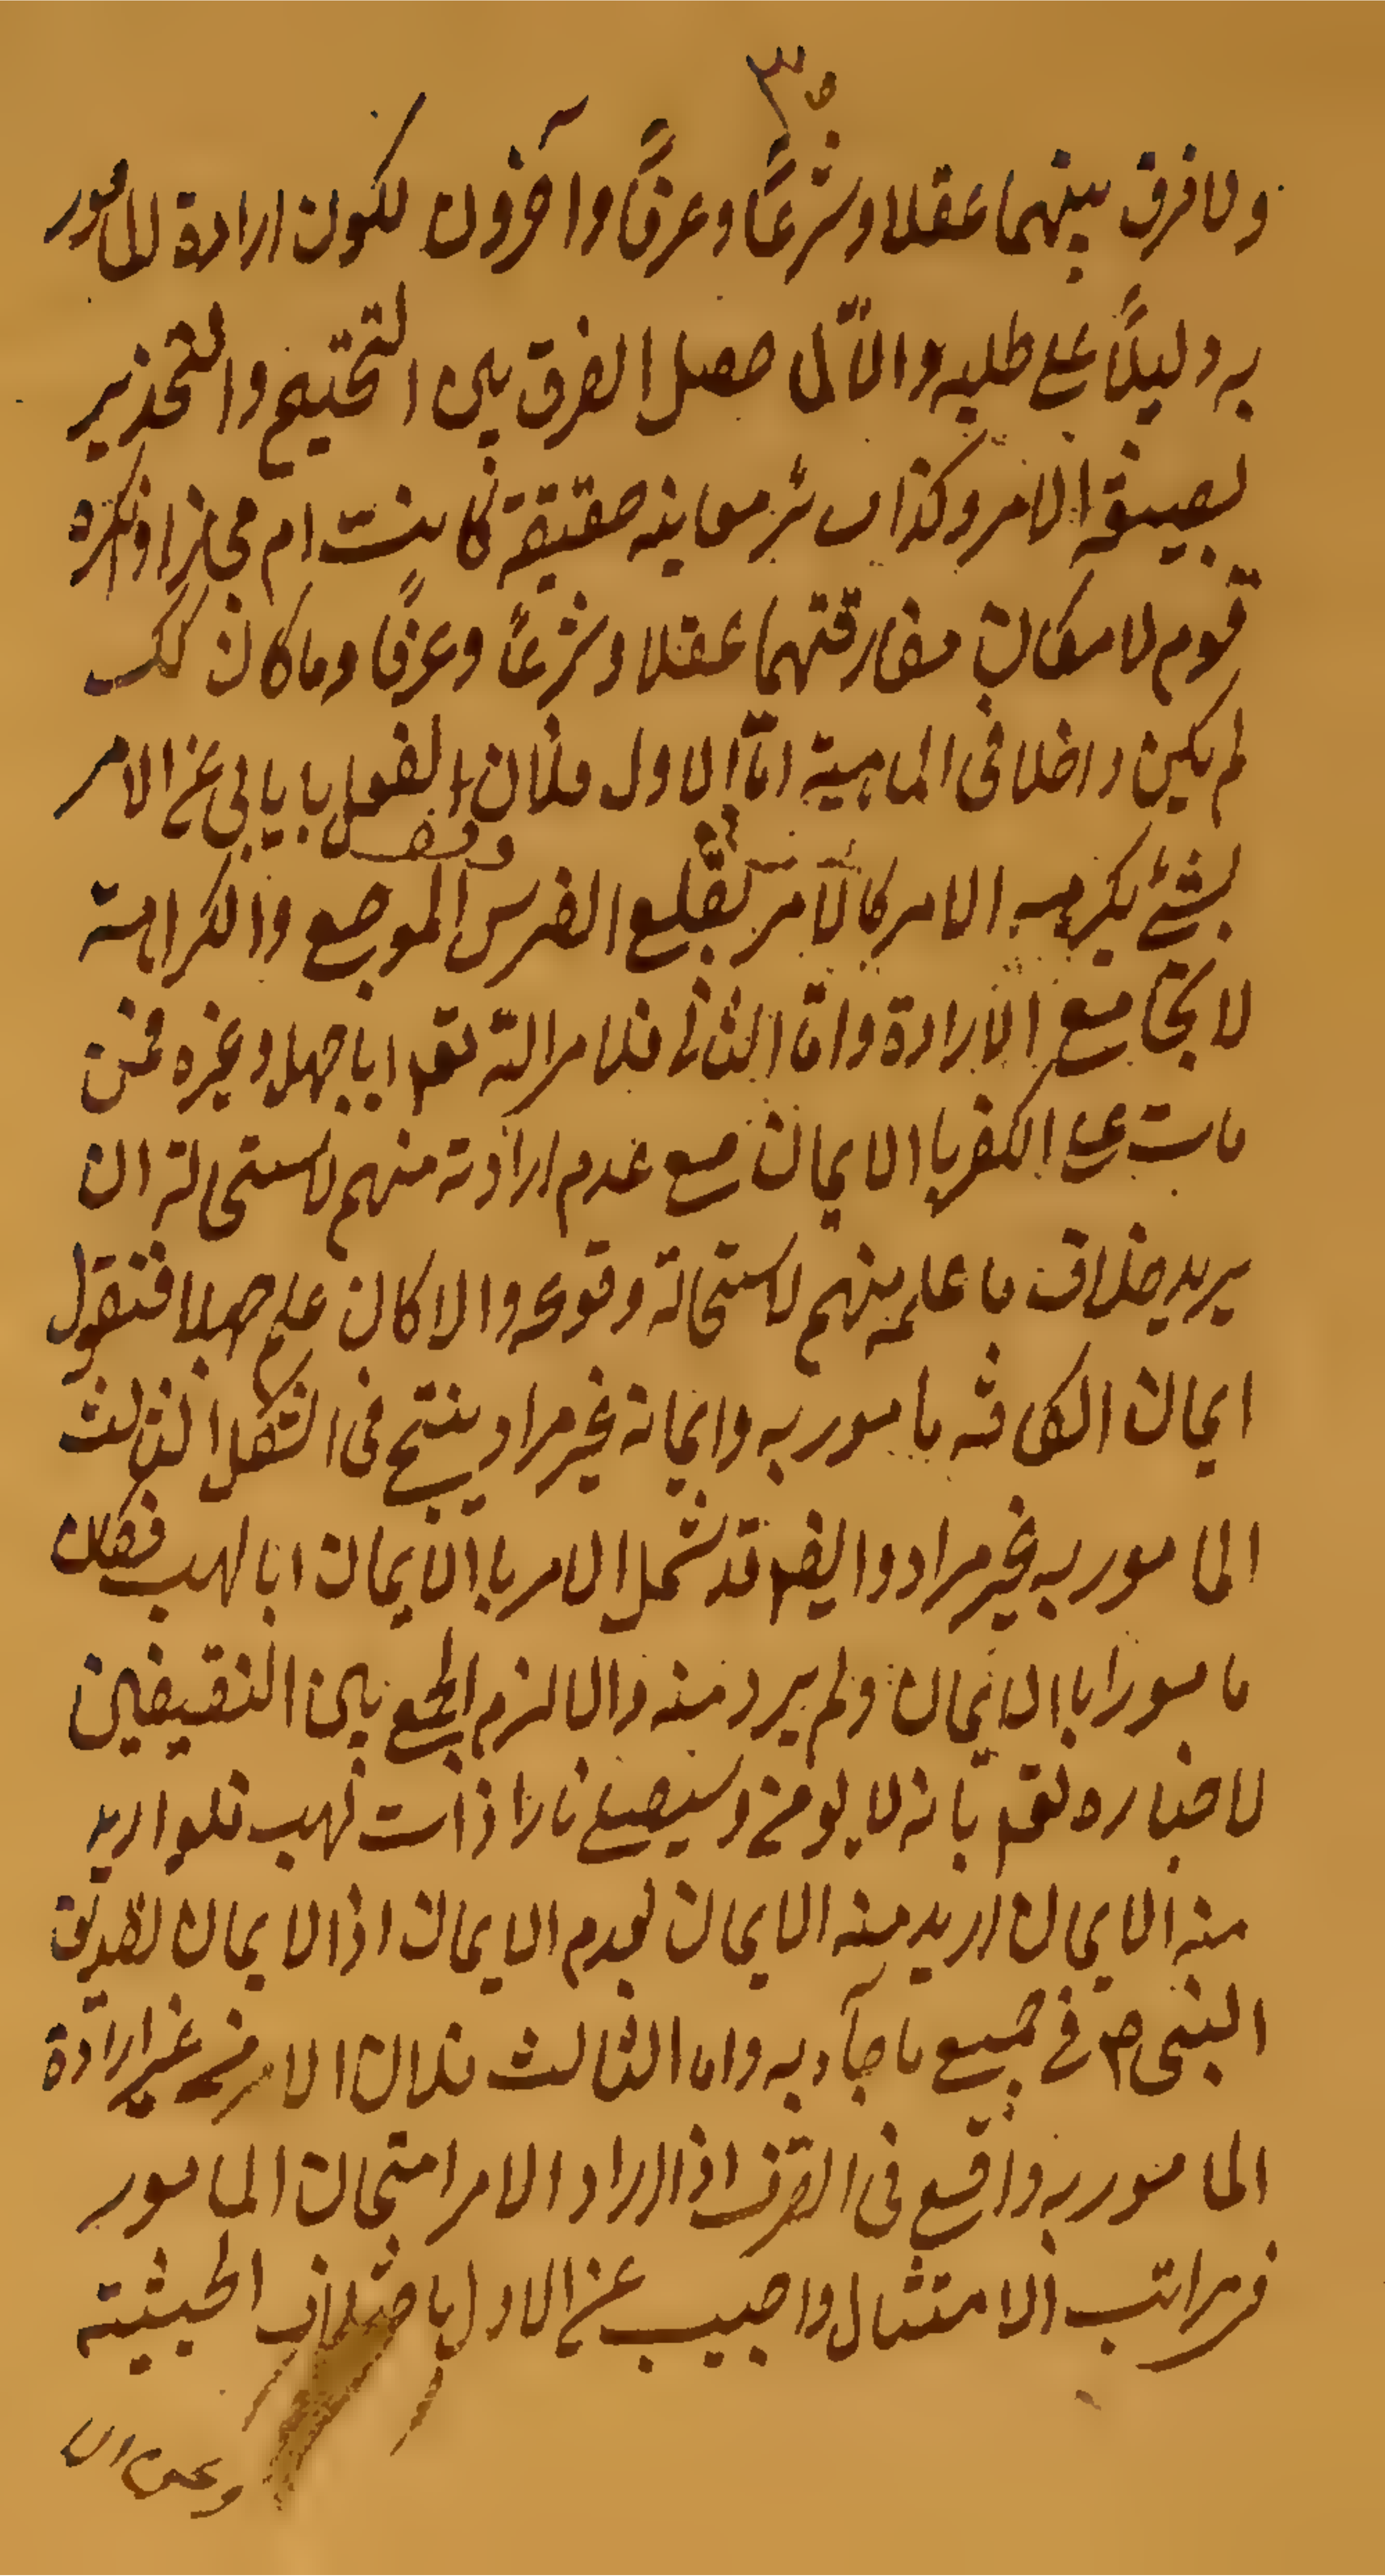 ٣
ولا فرق بينهما عقلا وشرعًا وعرفًا وآخرون لكون ارادة المأمور
به دليلًا على طلبه والّا لما حصل الفرق بين التحتيم والتحذير
بصيغة الامر وكذا سائر معاينه حقيقة كانت ام مجازا وانكره
قوم لامكان مفارقتهما عقلا وشرعًا وعرفًا وما كان كك
لم يكن داخلا فى الماهية امّا الاول فلان الفعل بايابى عن الامر
بشئ يكرهه الامر كالآمر بقلع الضرس الموجع والكراهة
لا تجامع الارادة وامّا الثانى فلامر الله تعم اباجهل وغيره ممن
مات على الكفر باالايمان مع عدم ارادته منهم لاستحالة ان
يريد خلاف ما علمه منهم لاستحالة وقوعه والا كان علمه جهلا فنقول
ايمان الكافر مامور به وايمانه غير مراد ينتج فى الشكل الثالث
المامور به غير مراد وايضم قد شمل الامر باالايمان ابالهب فكان
مامورا باالايمان ولم يرد منه والالزم الجمع بين النقيضين
لاخباره تعم بانه لا يومن وسيصلى نارا ذات لهب فلو اريد
منه الايمان اريد منه الايمان لعدم الايمان اذ الايمان تصديق
النبى ص فى جميع ما جآء به واما الثالث فلان الامر من غير ارادة
المامور به واقع فى العرف اذا اراد الامر امتحان المامور
فى مراتب الامتثال واجيب عن الاول باختلاف الحيثية